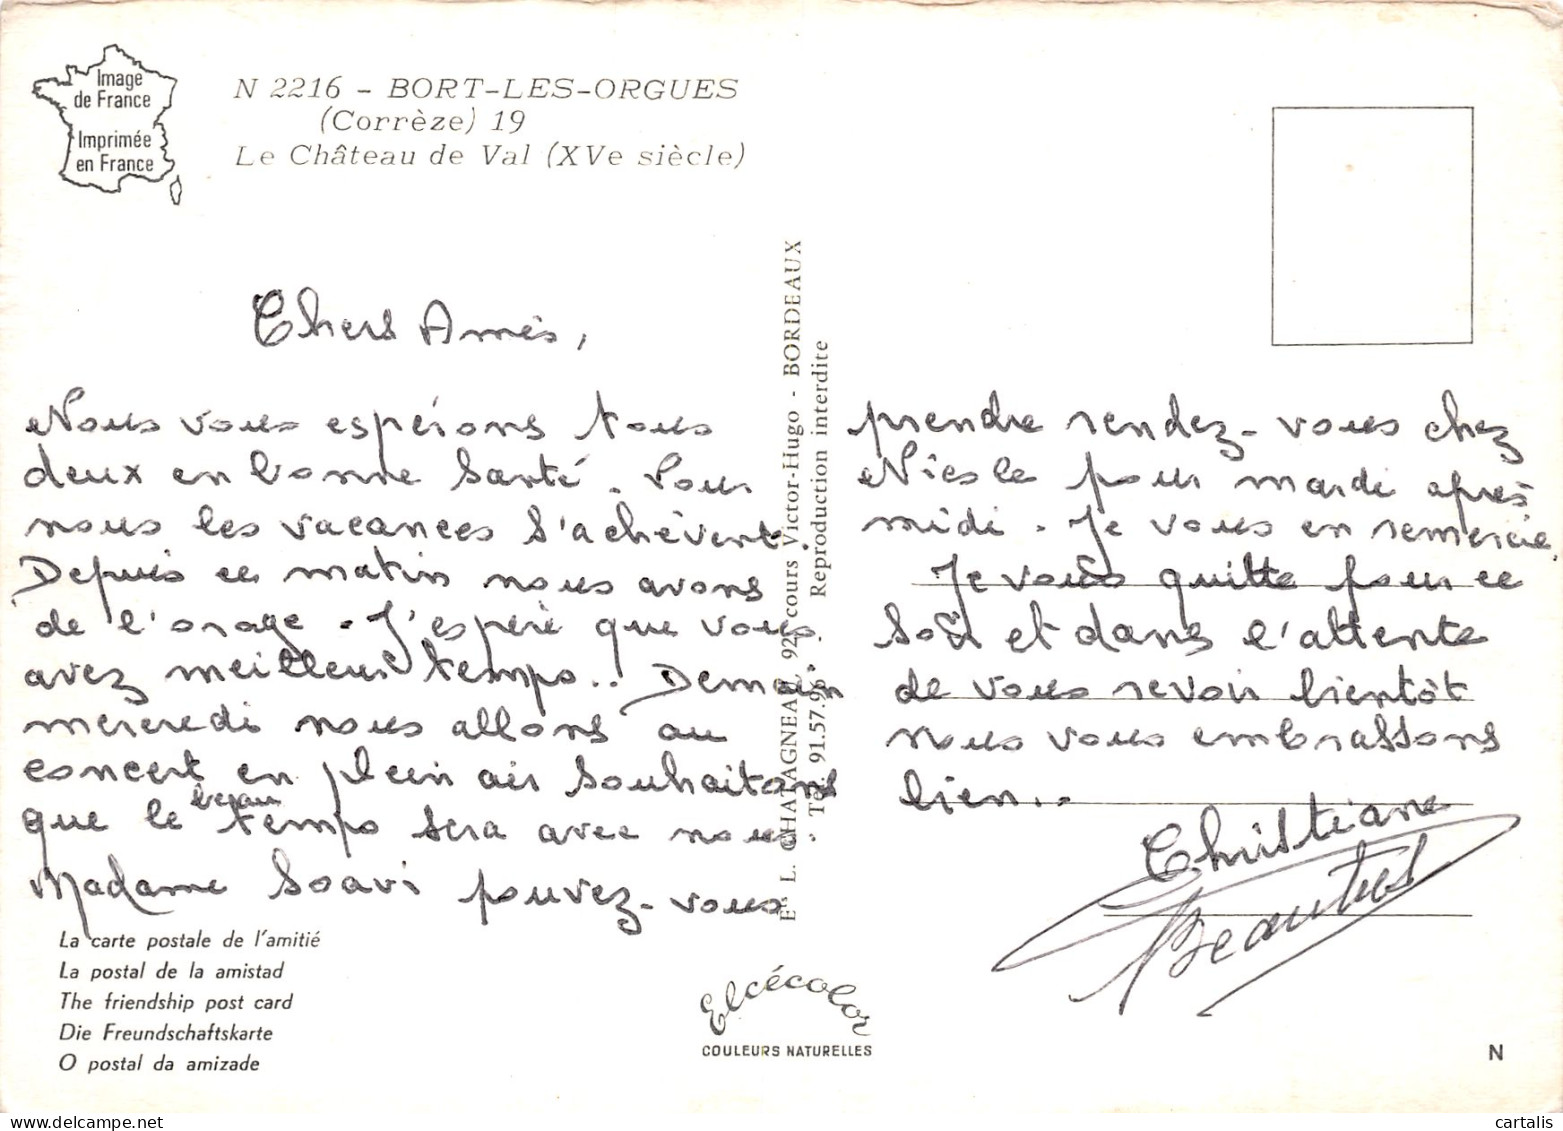 Image
de France
Imprimée
en France
N 2216 - BORT-LES-ORGUES
(Corrèze) 19
Le Château de Val (XVe siècle)
Chers Amis,
Nous vous espérons tous
deux en bonne santé. Pour
nous les vacances s'achèvent.
Depuis ce matin nous avons
de l'orage. J'espère que vous
avez meilleur temps.. Demain
mercredi nous allons au
concert en plein air souhaitons
que le beau temps sera avec nous
Madame Soavi pouvez-vous
prendre rendez-vous chez
Nicole pour mardi après
midi. Je vous en remercie.
Je vous quitte pour ce
soir et dans l'attente
de vous revoir bientôt
nous vous embrassons
bien..
Christiane
Els L. CHATAGNEAU, 92, cours Victor-Hugo - BORDEAUX
Tél. 91.57.96 - Reproduction interdite
La carte postale de l'amitié
La postal de la amistad
The friendship post card
Die Freundschaftskarte
O postal da amizade
Elcécolor
COULEURS NATURELLES
N
cartalis